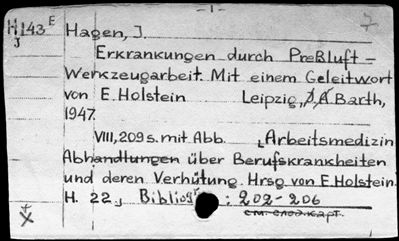 - 1 -
H 143 E
J
Hagen, J.
Erkrankungen durch Preßluft-
Werkzeugarbeit. Mit einem Geleitwort
von E. Holstein Leipzig, J.A. Barth,
1947.
VIII, 209 s. mit Abb. (Arbeitsmedizin
Abhandlungen über Berufskrankheiten
und deren Verhütung. Hrsg. von E. Holstein.
H. 22.) Bibliogr: 202-206
см. след. карт.